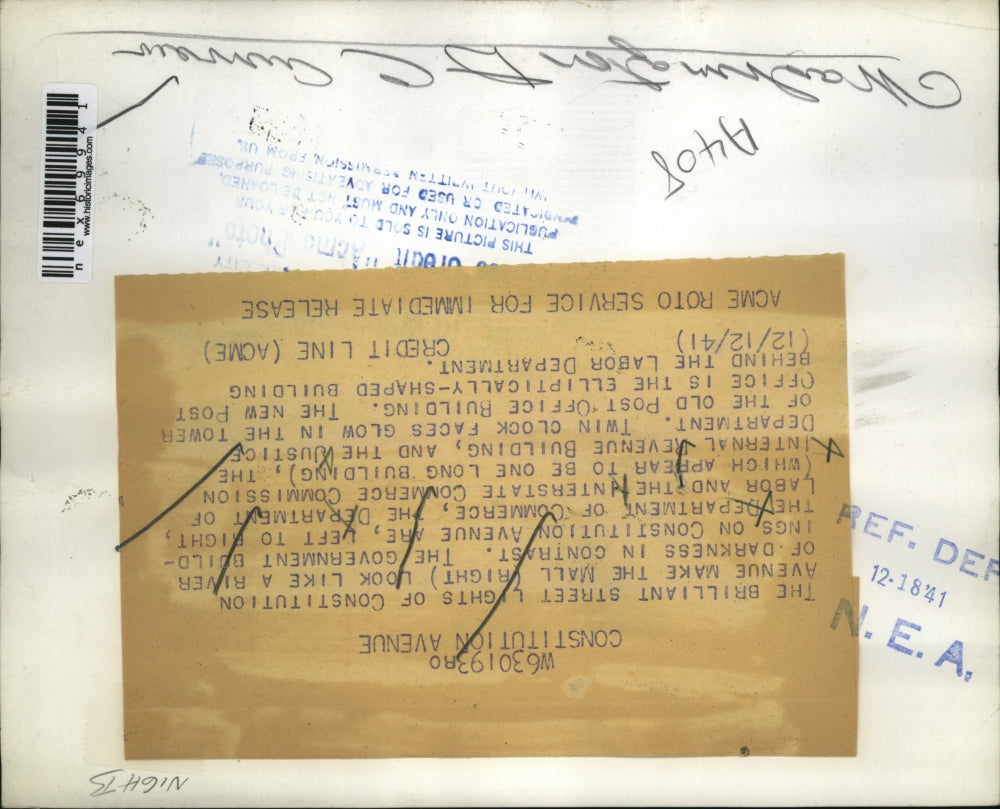 W630193RO
CONSTITUTION AVENUE
THE BRILLIANT STREET LIGHTS OF CONSTITUTION
AVENUE MAKE THE MALL (RIGHT) LOOK LIKE A RIVER
OF DARKNESS IN CONTRAST. THE GOVERNMENT BUILD-
INGS ON CONSTITUTION AVENUE ARE, LEFT TO RIGHT,
THE DEPARTMENT OF COMMERCE, THE DEPARTMENT OF
LABOR AND THE INTERSTATE COMMERCE COMMISSION
(WHICH APPEAR TO BE ONE LONG BUILDING), THE
INTERNAL REVENUE BUILDING, AND THE JUSTICE
DEPARTMENT. TWIN CLOCK FACES GLOW IN THE TOWER
OF THE OLD POST OFFICE BUILDING. THE NEW POST
OFFICE IS THE ELLIPTICALLY-SHAPED BUILDING
BEHIND THE LABOR DEPARTMENT.
(12/12/41) CREDIT LINE (ACME)
ACME ROTO SERVICE FOR IMMEDIATE RELEASE
Credit "Acme Photo"
THIS PICTURE IS SOLD TO YOU FOR YOUR
PUBLICATION ONLY AND MUST NOT BE LOANED,
SYNDICATED OR USED FOR ADVERTISING PURPOSE
WITHOUT WRITTEN PERMISSION FROM US.
A408
Washington D C
NIGHT
REF. DEP
12-18'41
N. E. A.
nex699941
www.historicimages.com